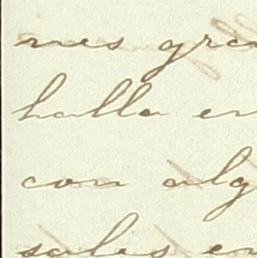 nes gra
halla en
con alg
sales en